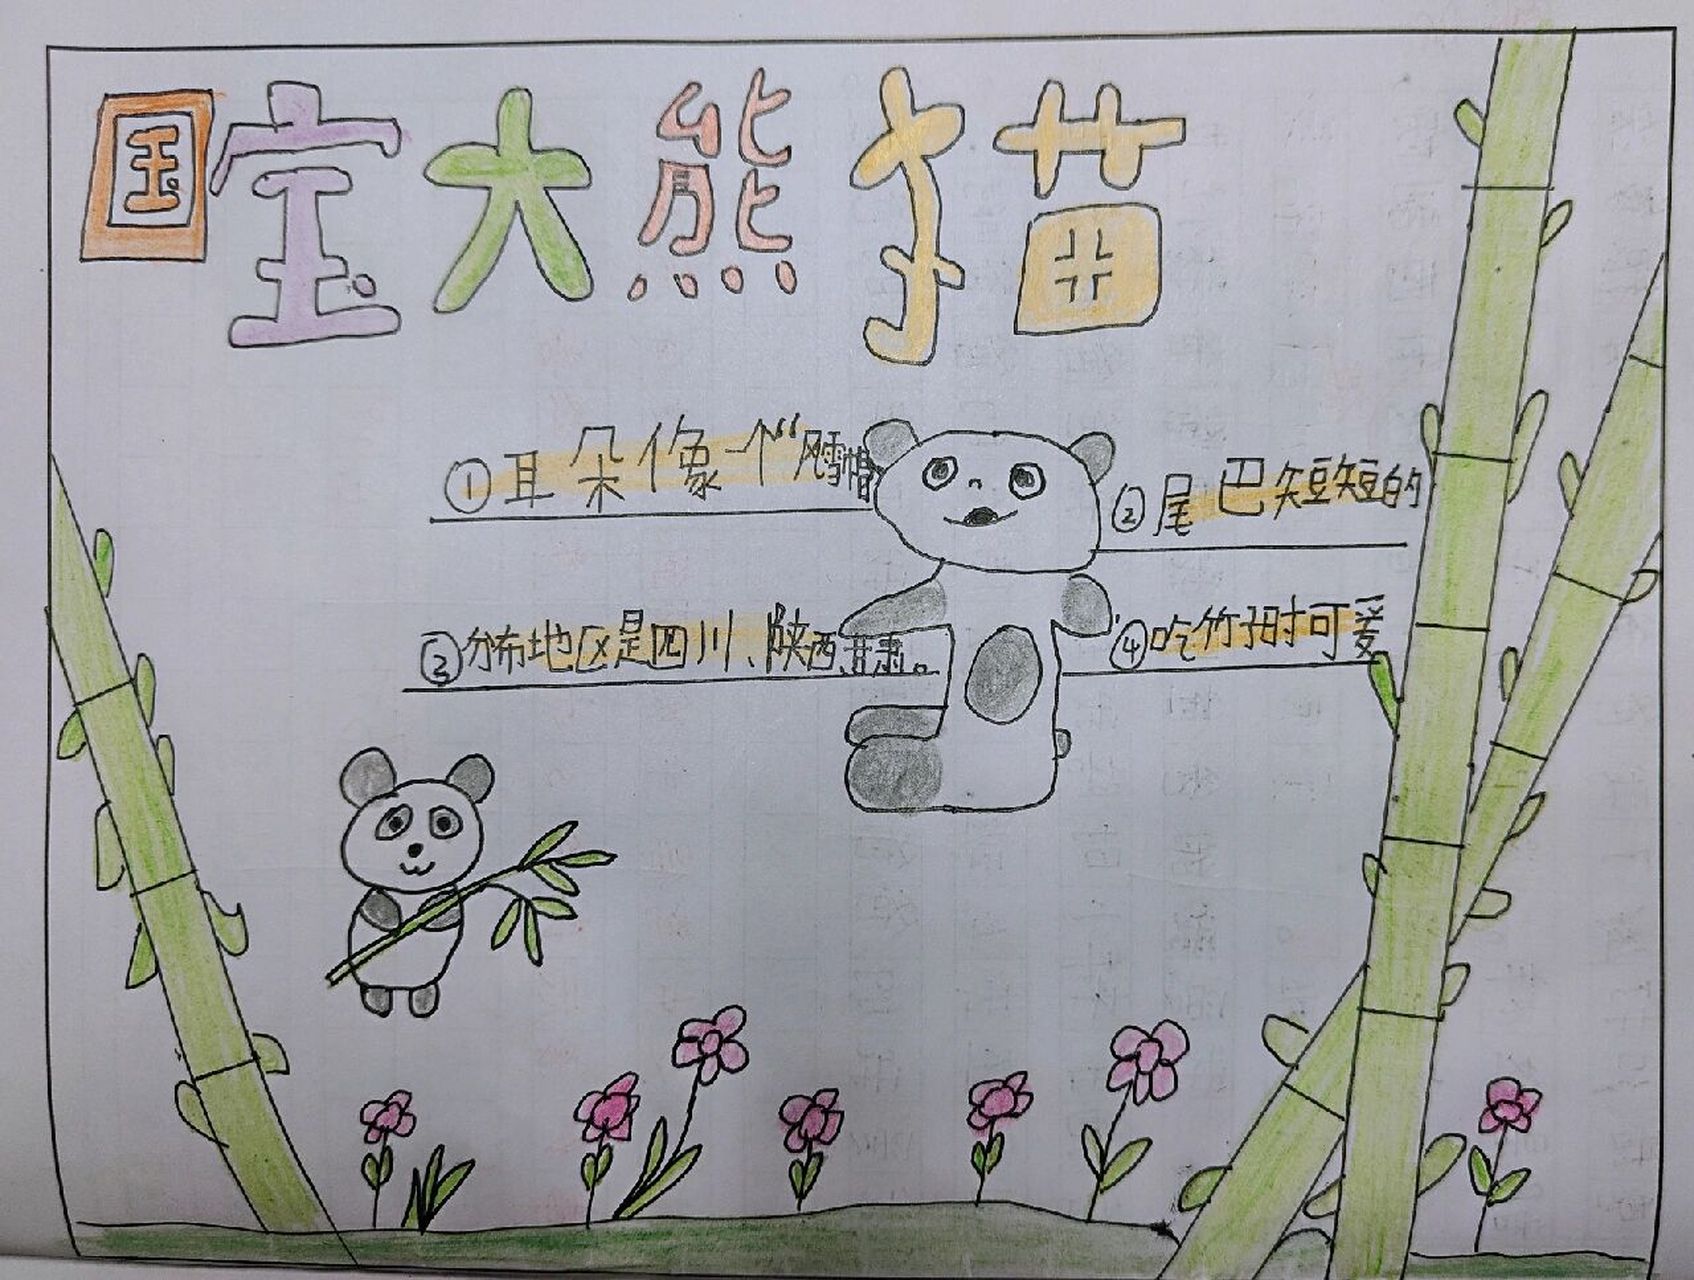 国宝大熊猫
①耳朵像一个“风雪帽
②尾巴短短的
③分布地区是四川、陕西、甘肃。
④吃竹子时可爱